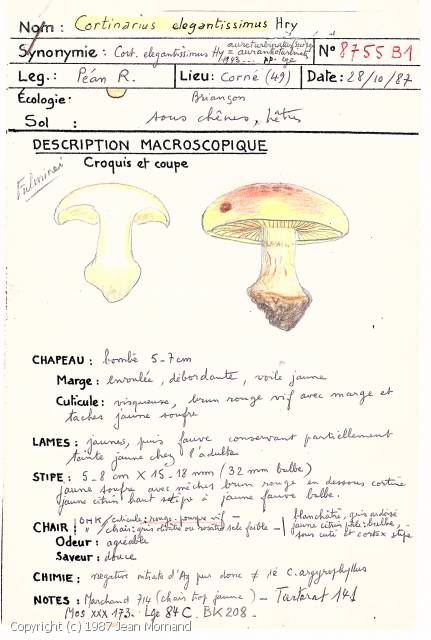 Nom : Cortinarius elegantissimus Hry
Synonymie : Cort. elegantissimus Hy = aurantioturbinatus
1943 ... pp. Lge
N° 8755 B1
Leg. : Péan R. Lieu : Corné (49) Date : 28/10/87
Écologie : Briançon
Sol : sous chênes, hêtres
DESCRIPTION MACROSCOPIQUE
Croquis et coupe
Fulminei
CHAPEAU : bombé 5-7cm
Marge : enroulée, débordante, voile jaune
Cuticule : visqueuse, brun rouge vif avec marge et
taches jaune soufre
LAMES : jaunes, puis fauve conservant partiellement
teinte jaune chez l'adulte
STIPE : 5-8 cm X 15-18 mm (32 mm bulbe)
jaune soufre avec mèches brun rouge en dessous cortine
jaune citrin haut stipe à jaune fauve bulbe.
CHAIR : OHK cuticule : rouge pourpre vif -
" chair : gris olivâtre ou rosâtre sale faible -
blanchâtre, gris ardoisé
jaune citrin pâle : bulbe,
sous cuti et cortex stipe
Odeur : agréable
Saveur : douce
CHIMIE : negative nitrate d'Ag pur donc ≠ de C. argyrophyllus
NOTES : Marchand 714 (chair trop jaune) - Tartarat 141
Mos XXX 173. Lge 84 C. BK 208.
Copyright (c) 1987 Jean Mornand